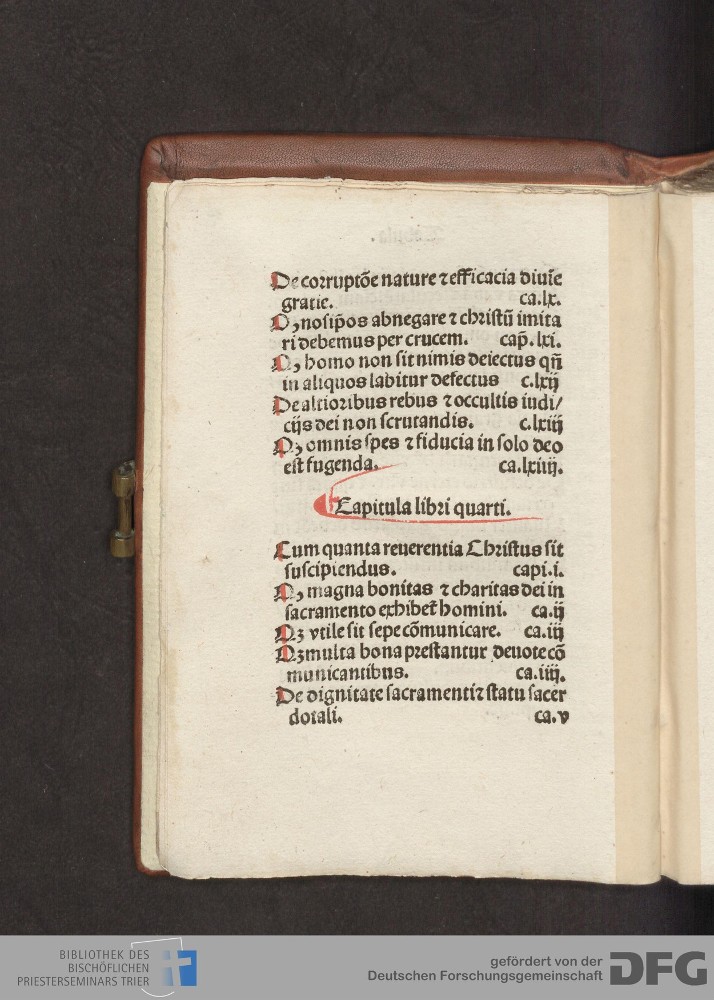 De corruptõe nature ⁊ efficacia diuĩe
gratie. ca.lx.
Qꝫ nosip̃os abnegare ⁊ christũ imita
ri debemus per crucem. cap̃. lxi.
Qꝫ homo non sit nimis deiectus qñ
in aliquos labitur defectus c.lxij
De altioribus rebus ⁊ occultis iudi/
cijs dei non scrutandis. c.lxiij
Qꝫ omnis spes ⁊ fiducia in solo deo
est fugenda. ca.lxiiij.
Capitula libri quarti.
Cum quanta reuerentia Christus sit
suscipiendus. capi.i.
Qꝫ magna bonitas ⁊ charitas dei in
sacramento exhibet̃ homini. ca.ij
Qꝫ vtile sit sepe cõmunicare. ca.iij
Qꝫ multa bona prestantur deuote cõ
municantibus. ca.iiij.
De dignitate sacramenti ⁊ statu sacer
dotali. ca.v
BIBLIOTHEK DES
BISCHÖFLICHEN
PRIESTERSEMINARS TRIER
gefördert von der
Deutschen Forschungsgemeinschaft
DFG